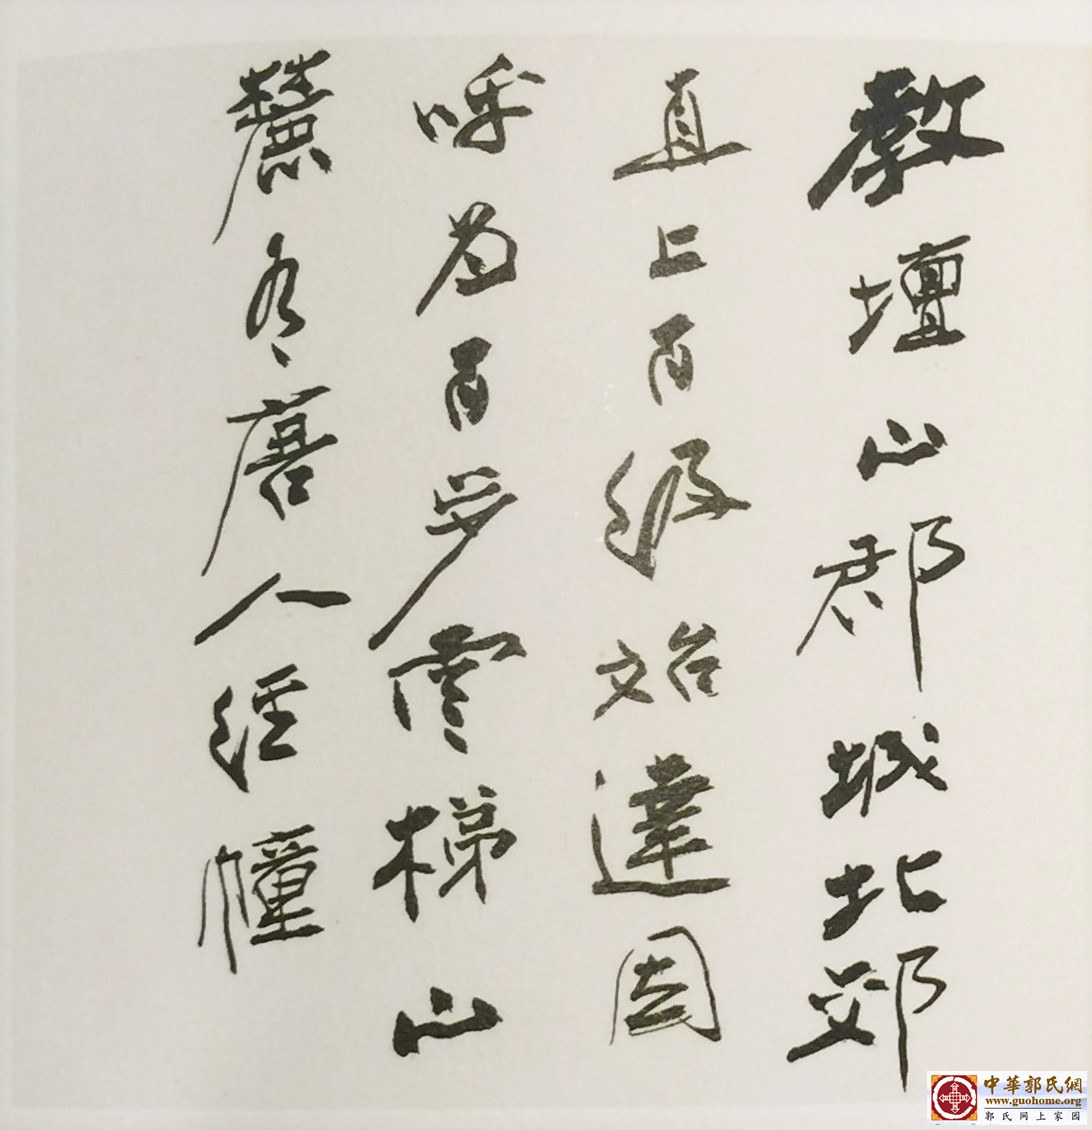 教壇山郡城北郊
直上百級始達因
呼為百步雲梯山
麓有唐人經幢
中華郭氏網
www.guohome.org
郭氏网上家园